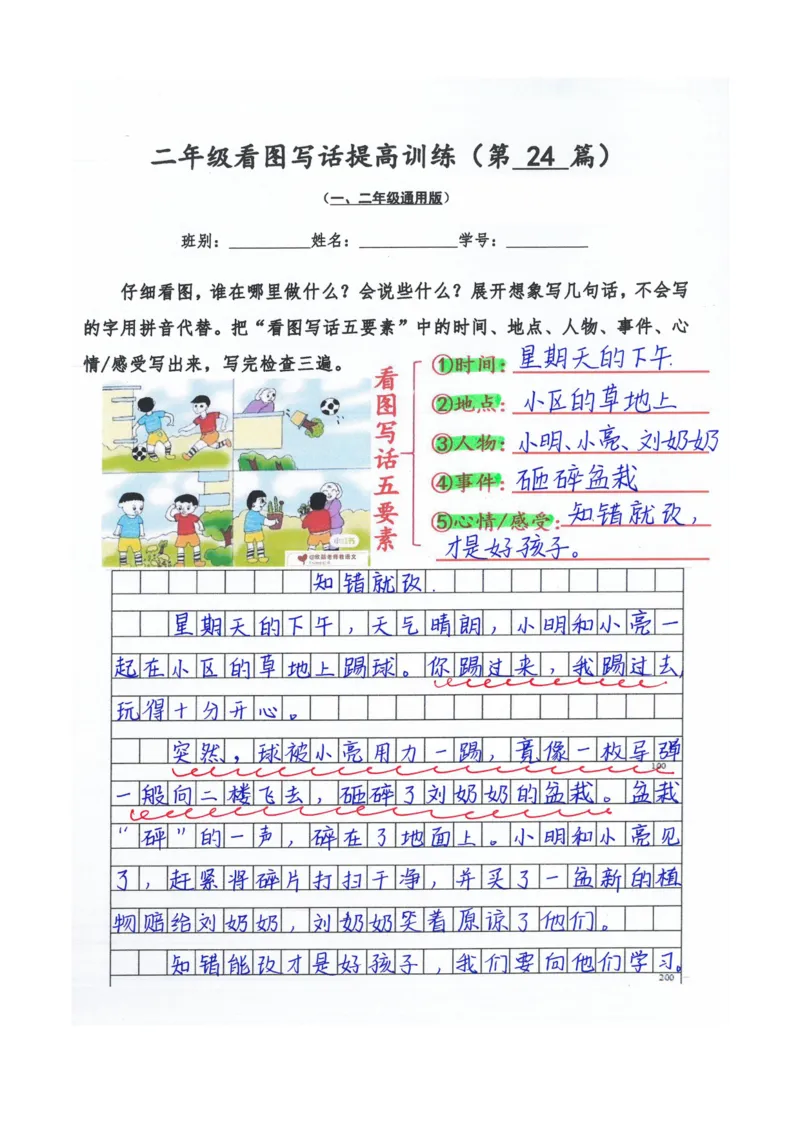 二年级看图写话提高训练（第 24 篇）
（一、二年级通用版）
班别：__________姓名：____________学号：__________
仔细看图，谁在哪里做什么？会说些什么？展开想象写几句话，不会写
的字用拼音代替。把“看图写话五要素”中的时间、地点、人物、事件、心
情/感受写出来，写完检查三遍。
看图写话五要素
①时间：星期天的下午.
②地点：小区的草地上
③人物：小明、小亮、刘奶奶
④事件：砸碎盆栽
⑤心情/感受：知错就改，
才是好孩子。
小红书
@欧颖老师教语文
知错就改.
星期天的下午，天气晴朗，小明和小亮一
起在小区的草地上踢球。你踢过来，我踢过去，
玩得十分开心。
突然，球被小亮用力一踢，竟像一枚导弹
100
一般向二楼飞去，砸碎了刘奶奶的盆栽。盆栽
“砰”的一声，碎在了地面上。小明和小亮见
了，赶紧将碎片打扫干净，并买了一盆新的植
物赔给刘奶奶，刘奶奶笑着原谅了他们。
知错能改才是好孩子，我们要向他们学习。
200